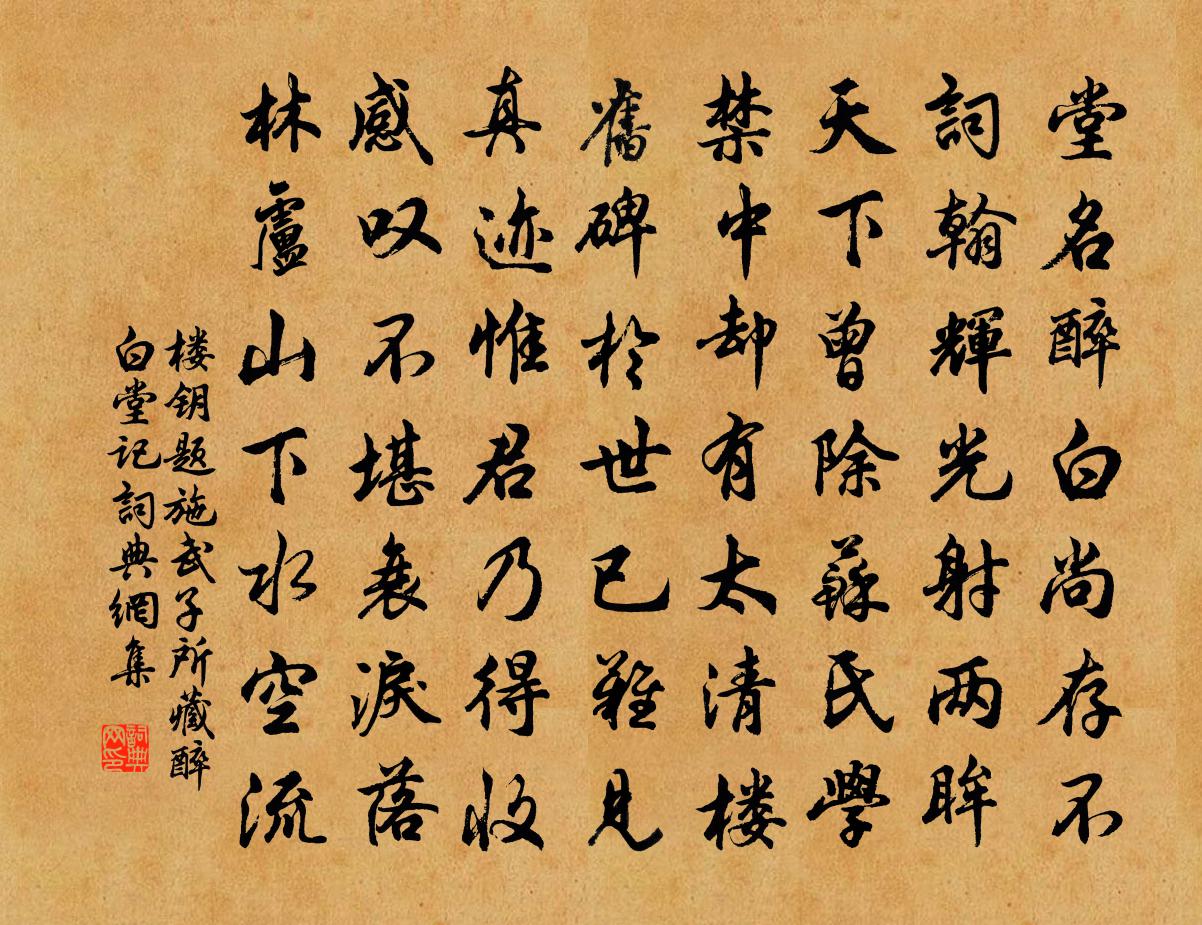 堂名醉白尚存不
詞翰輝光射两眸
天下曾除蘇氏學
禁中却有太清楼
舊碑於世已難見
真迹惟君乃得收
感叹不堪衰淚落
林廬山下水空流
楼钥题施武子所藏醉
白堂记詞典網集
詞典网印